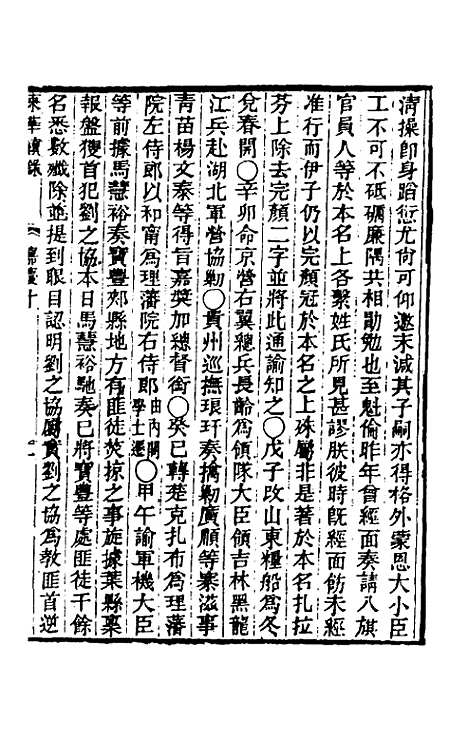 清操卽身蹈愆尤尙可仰邀末減其子嗣亦得格外蒙恩大小臣
工不可不砥礪廉隅共相勛勉也至魁倫昨年曾經面奏請八旗
官員人等於本名上各繫姓氏所見甚謬朕彼時旣經面飭未經
准行而伊子仍以完顏冠於本名之上殊屬非是著於本名扎拉
芬上除去完顏二字並將此通諭知之○戊子改山東糧船爲冬
兌春開○辛卯命京營右翼總兵長齡爲領隊大臣領吉林黑龍
江兵赴湖北軍營協勦○貴州巡撫琅玕奏擒勦廣順等寨滋事
靑苗楊文泰等得旨嘉奬加總督銜○癸巳轉楚克扎布爲理藩
院左侍郎以和甯爲理藩院右侍郎由內閣學士遷○甲午諭軍機大臣
等前據馬慧裕奏寶豐郟縣地方有匪徒焚掠之事旋據葉縣稟
報盤獲首犯劉之協本日馬慧裕馳奏已將寶豐等處匪徒千餘
名悉數殲除並提到眼目認明劉之協屬實劉之協爲教匪首逆
東華續錄